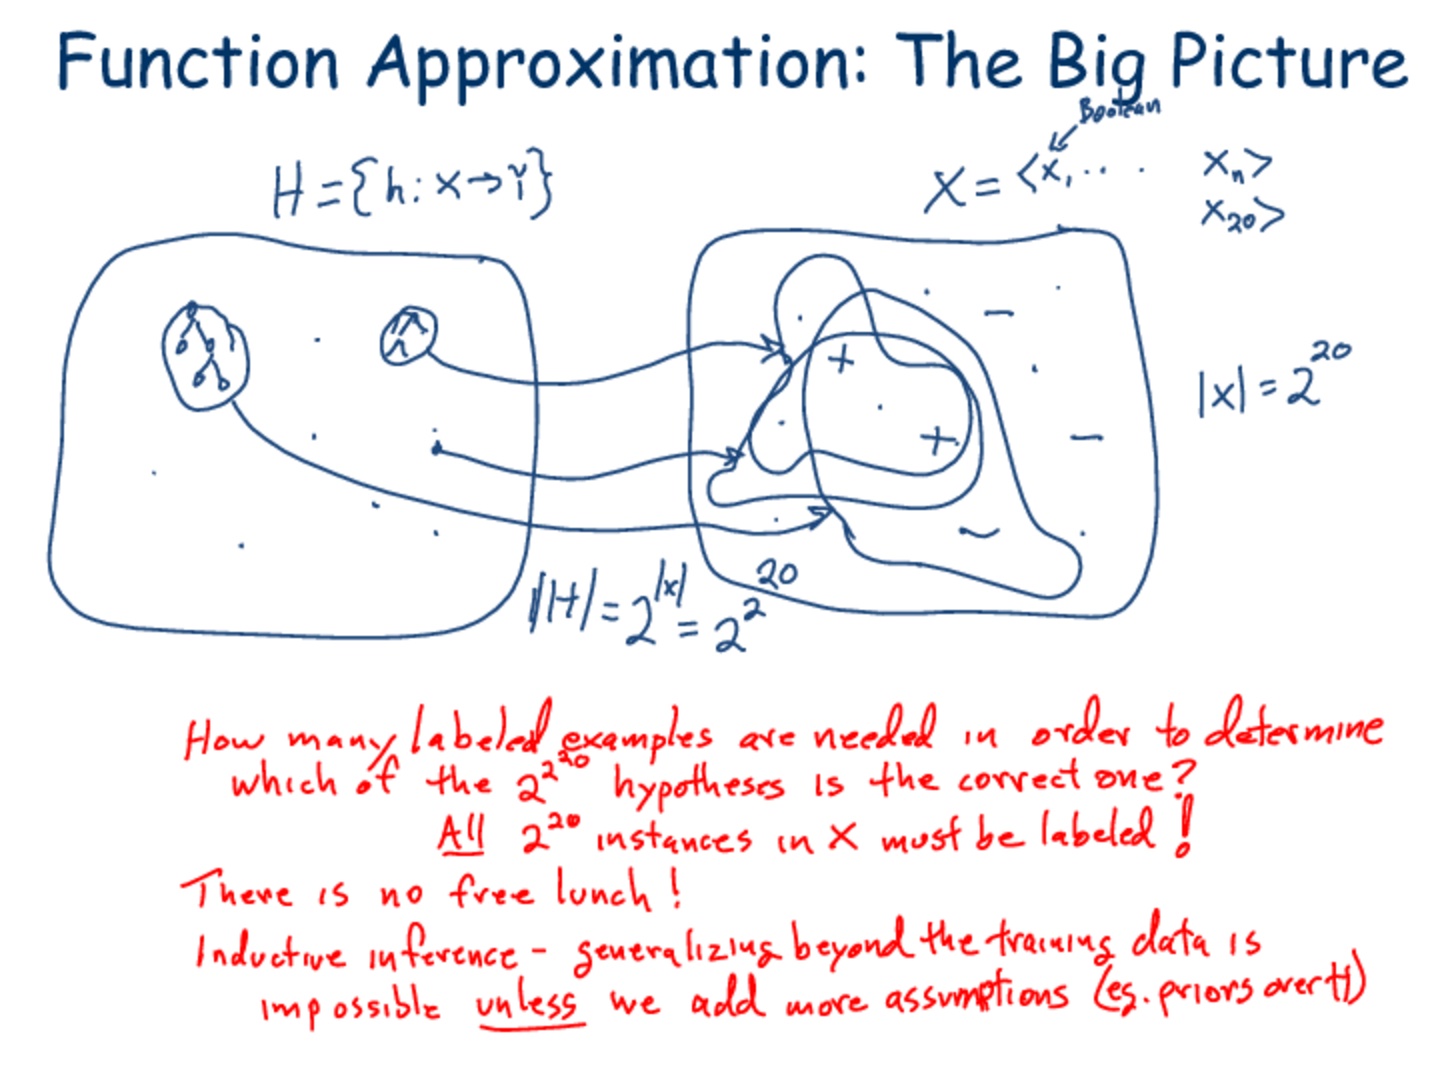 Function Approximation: The Big Picture
Boolean
H = {h: X → Y}
X = <x, ... xₙ>
x₂₀>
+
−
|X| = 2²⁰
+
−
−
|H| = 2^|X| = 2^2^20
How many labeled examples are needed in order to determine
which of the 2^2^20 hypotheses is the correct one?
All 2²⁰ instances in X must be labeled!
There is no free lunch!
Inductive inference - generalizing beyond the training data is
impossible unless we add more assumptions (eg. priors over H)